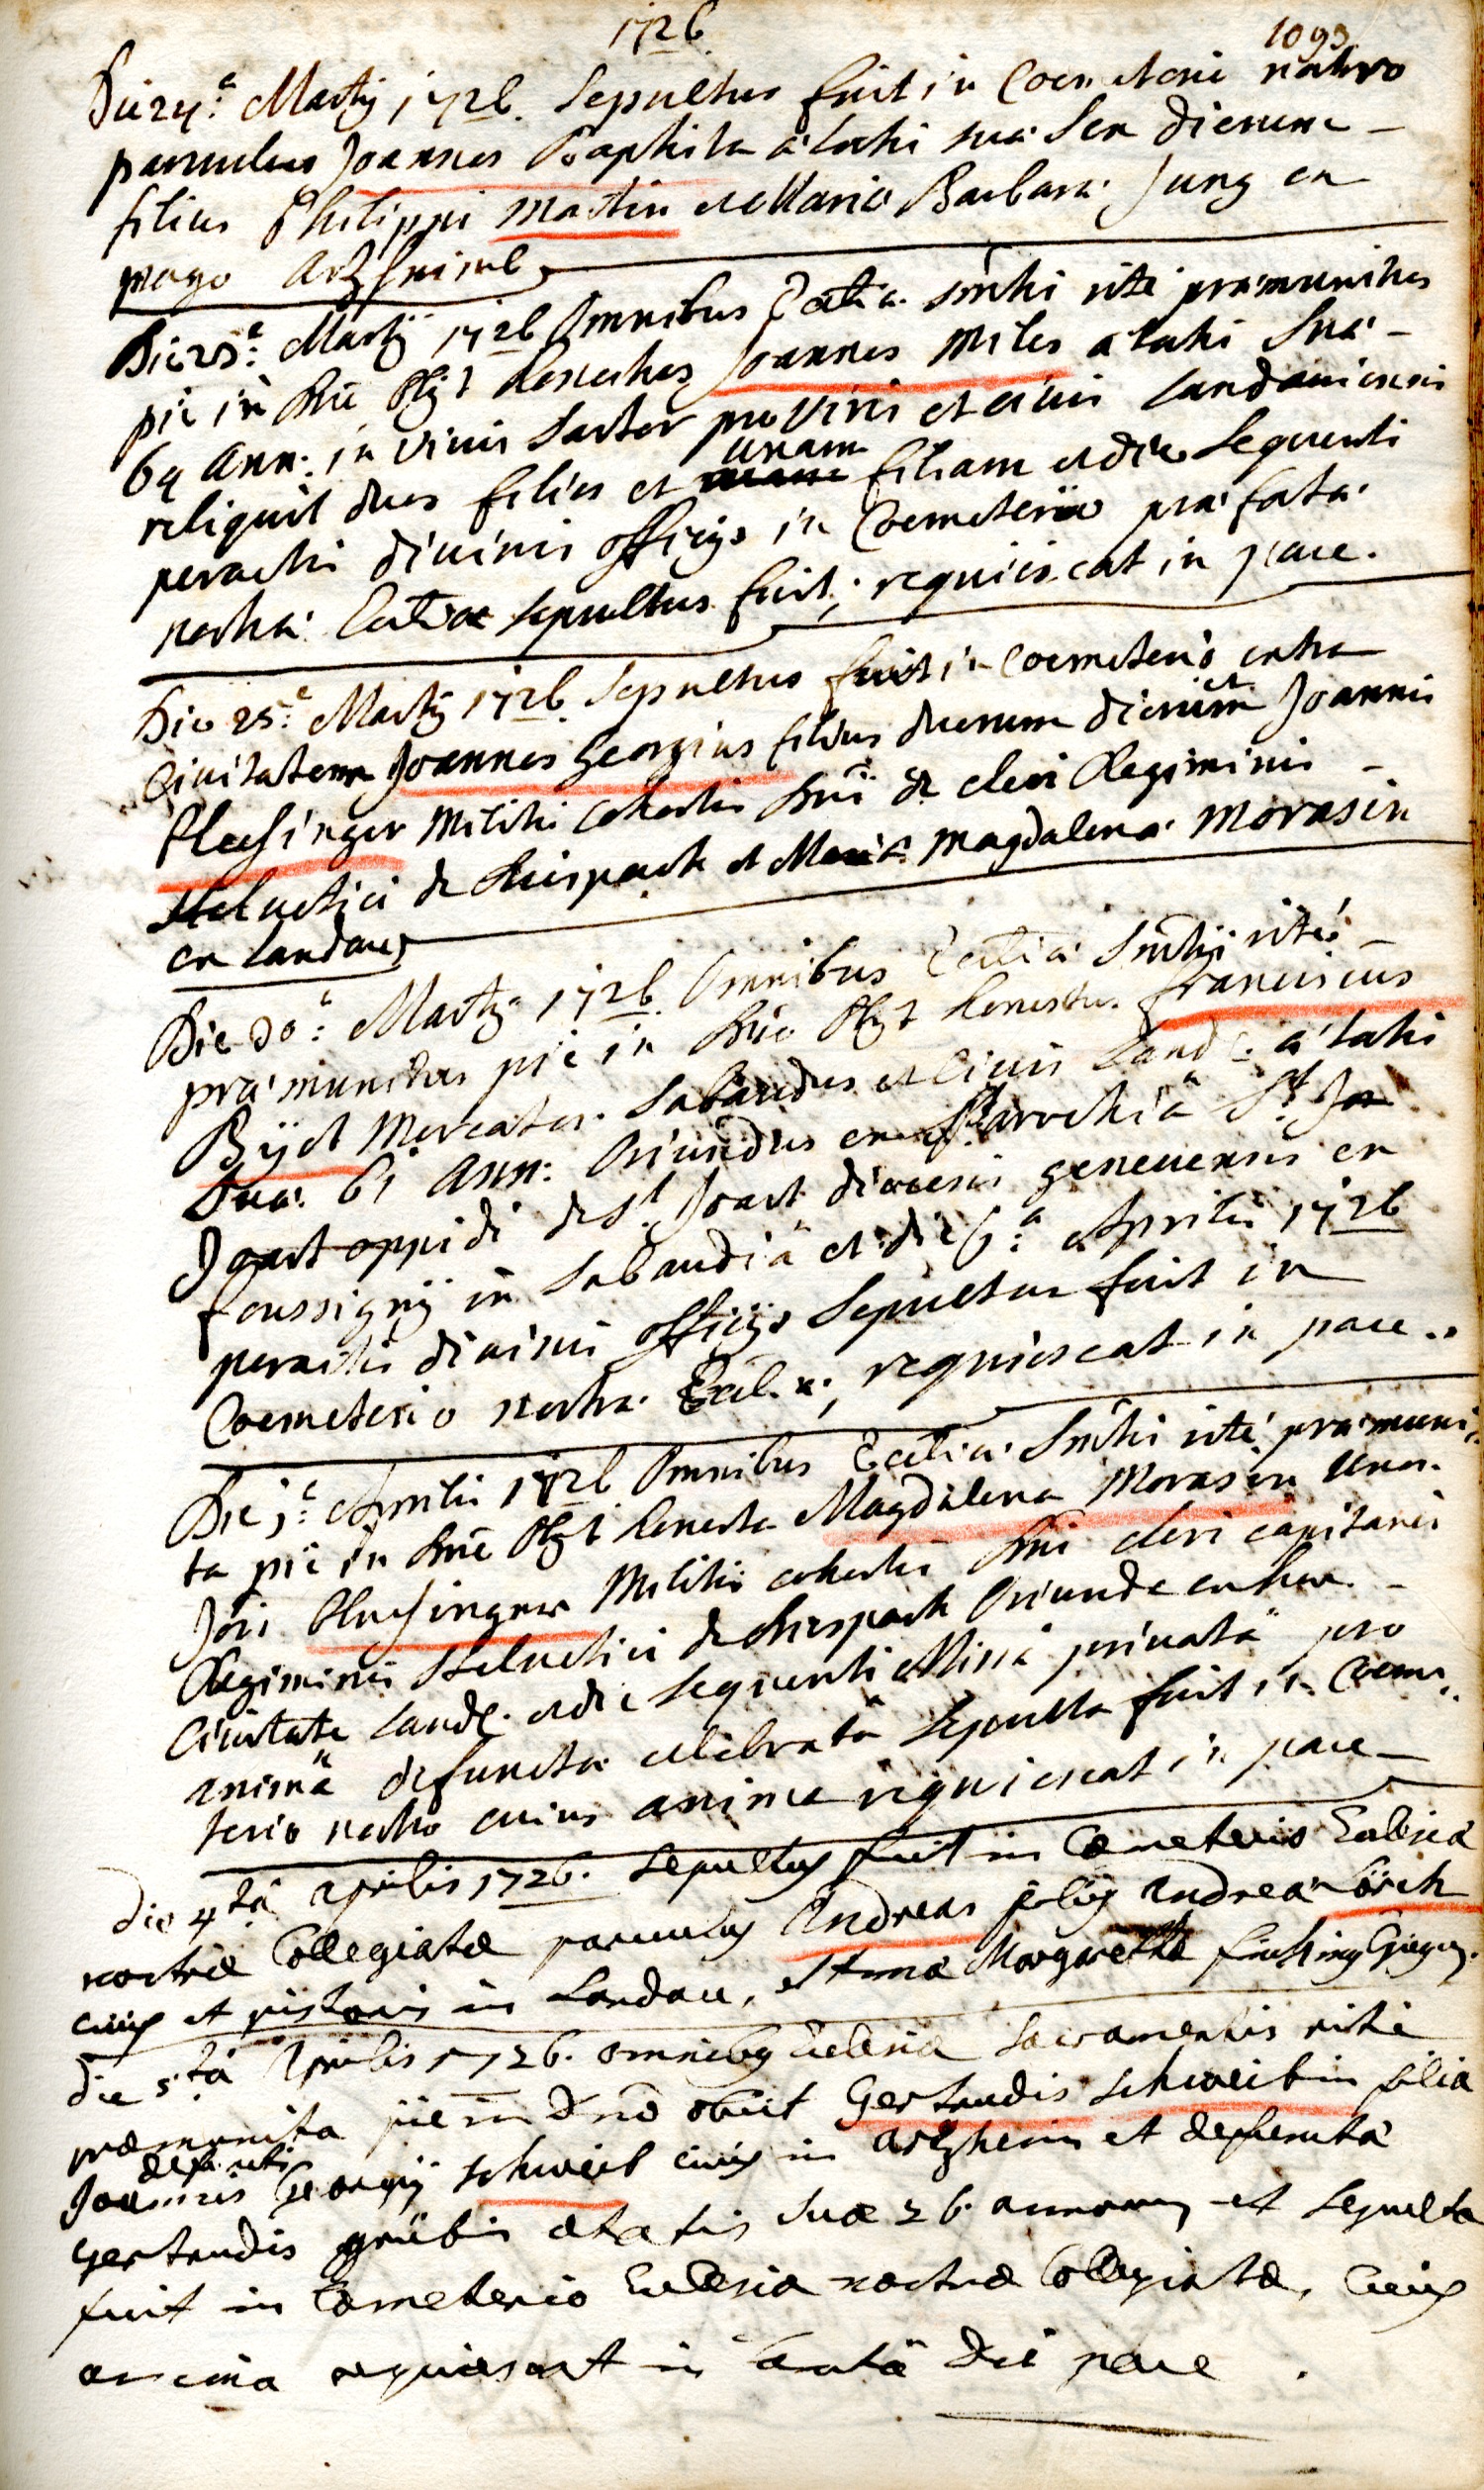 1726.
1093
Die 24.ª Martij 1726. Sepultus fuit in Coemeterio nostro
parvulus Joannes Baptista ætatis suæ Sex dierum –
filius Philippi Martin et Mariæ Barbaræ Jung ex
pago Artzheimb
Die 25.ª Martij 1726 Omnibus Ecctiæ Smtis rite præmunitus
pie in Dno Obijt honestus Joannes Miles ætatis Suæ –
69 Ann: in vivis Sartor et civis Landaviensis
reliquit duos filios et unam filiam et die Sequenti
peractis divinis officijs in Coemeterio præfatæ
nostræ Ecctiæ sepultus fuit; requiescat in pace.
Die 25.ª Martij 1726. Sepultus fuit in Coemeterio extra
Civitatem Joannes Georgius filius duorum dierum Joannis
Plessinger Militis Cohortis Dni de Cleri Regiminis –
Helvetici de Hirspach et Mariæ Magdalenæ Morasin
ex Landau
Die 30.ª Martij 1726. Omnibus Ecctiæ Smtis rité –
præmunitus pie in Dno Obijt honestus Franciscus
Byet Mercator Sabaudus et Civis Land: ætatis
Suæ 61 Ann: Oriundus ex Parochiâ St. Jo
Joart oppidi de St. Joart diocesis genevensis en
foussigny in Sabaudiâ et die 6.ª Aprilis 1726
peractis divinis officijs Sepultus fuit in
Coemeterio nostræ Eccl.æ; requiescat in pace..
Die j.ª Aprilis 1726 Omnibus Ecctiæ Smtis rité præmuni-
ta pie in Dno Obijt honesta Magdalena Morasin Uxor
Jois Plessinger Militis cohortis Dni cleri capitanei
Regiminis Helvetici de Hirspach Oriunda ex hac –
Civitate Land: et die sequenti Missâ privatâ pro
animâ defunctæ celebratâ Sepulta fuit in Coeme-
terio nostro cuius anima requiescat in pace
Die 4.tâ Aprilis 1726. Sepultus fuit in Cœmeterio Ecclesiæ
nostræ Collegiatæ parvulus Andreas filius Andreæ Lörch
civis et pistoris in Landau, et Annæ Margarethæ
die 5.tâ Aprilis 1726. omnibus Ecclesiæ Sacramentis rite
præmunita pie in Dno obiit Gertrudis Schweibin filia
defuncti
Joannis Georgij Schweib civis in Artzheim et defunctæ
Gertrudis grübin ætatis suæ 26. annorum et Sepulta
fuit in Cœmeterio Ecclesiæ nostræ Collegiatæ, Cuius
anima requiescat in Sanctâ Dei pace.